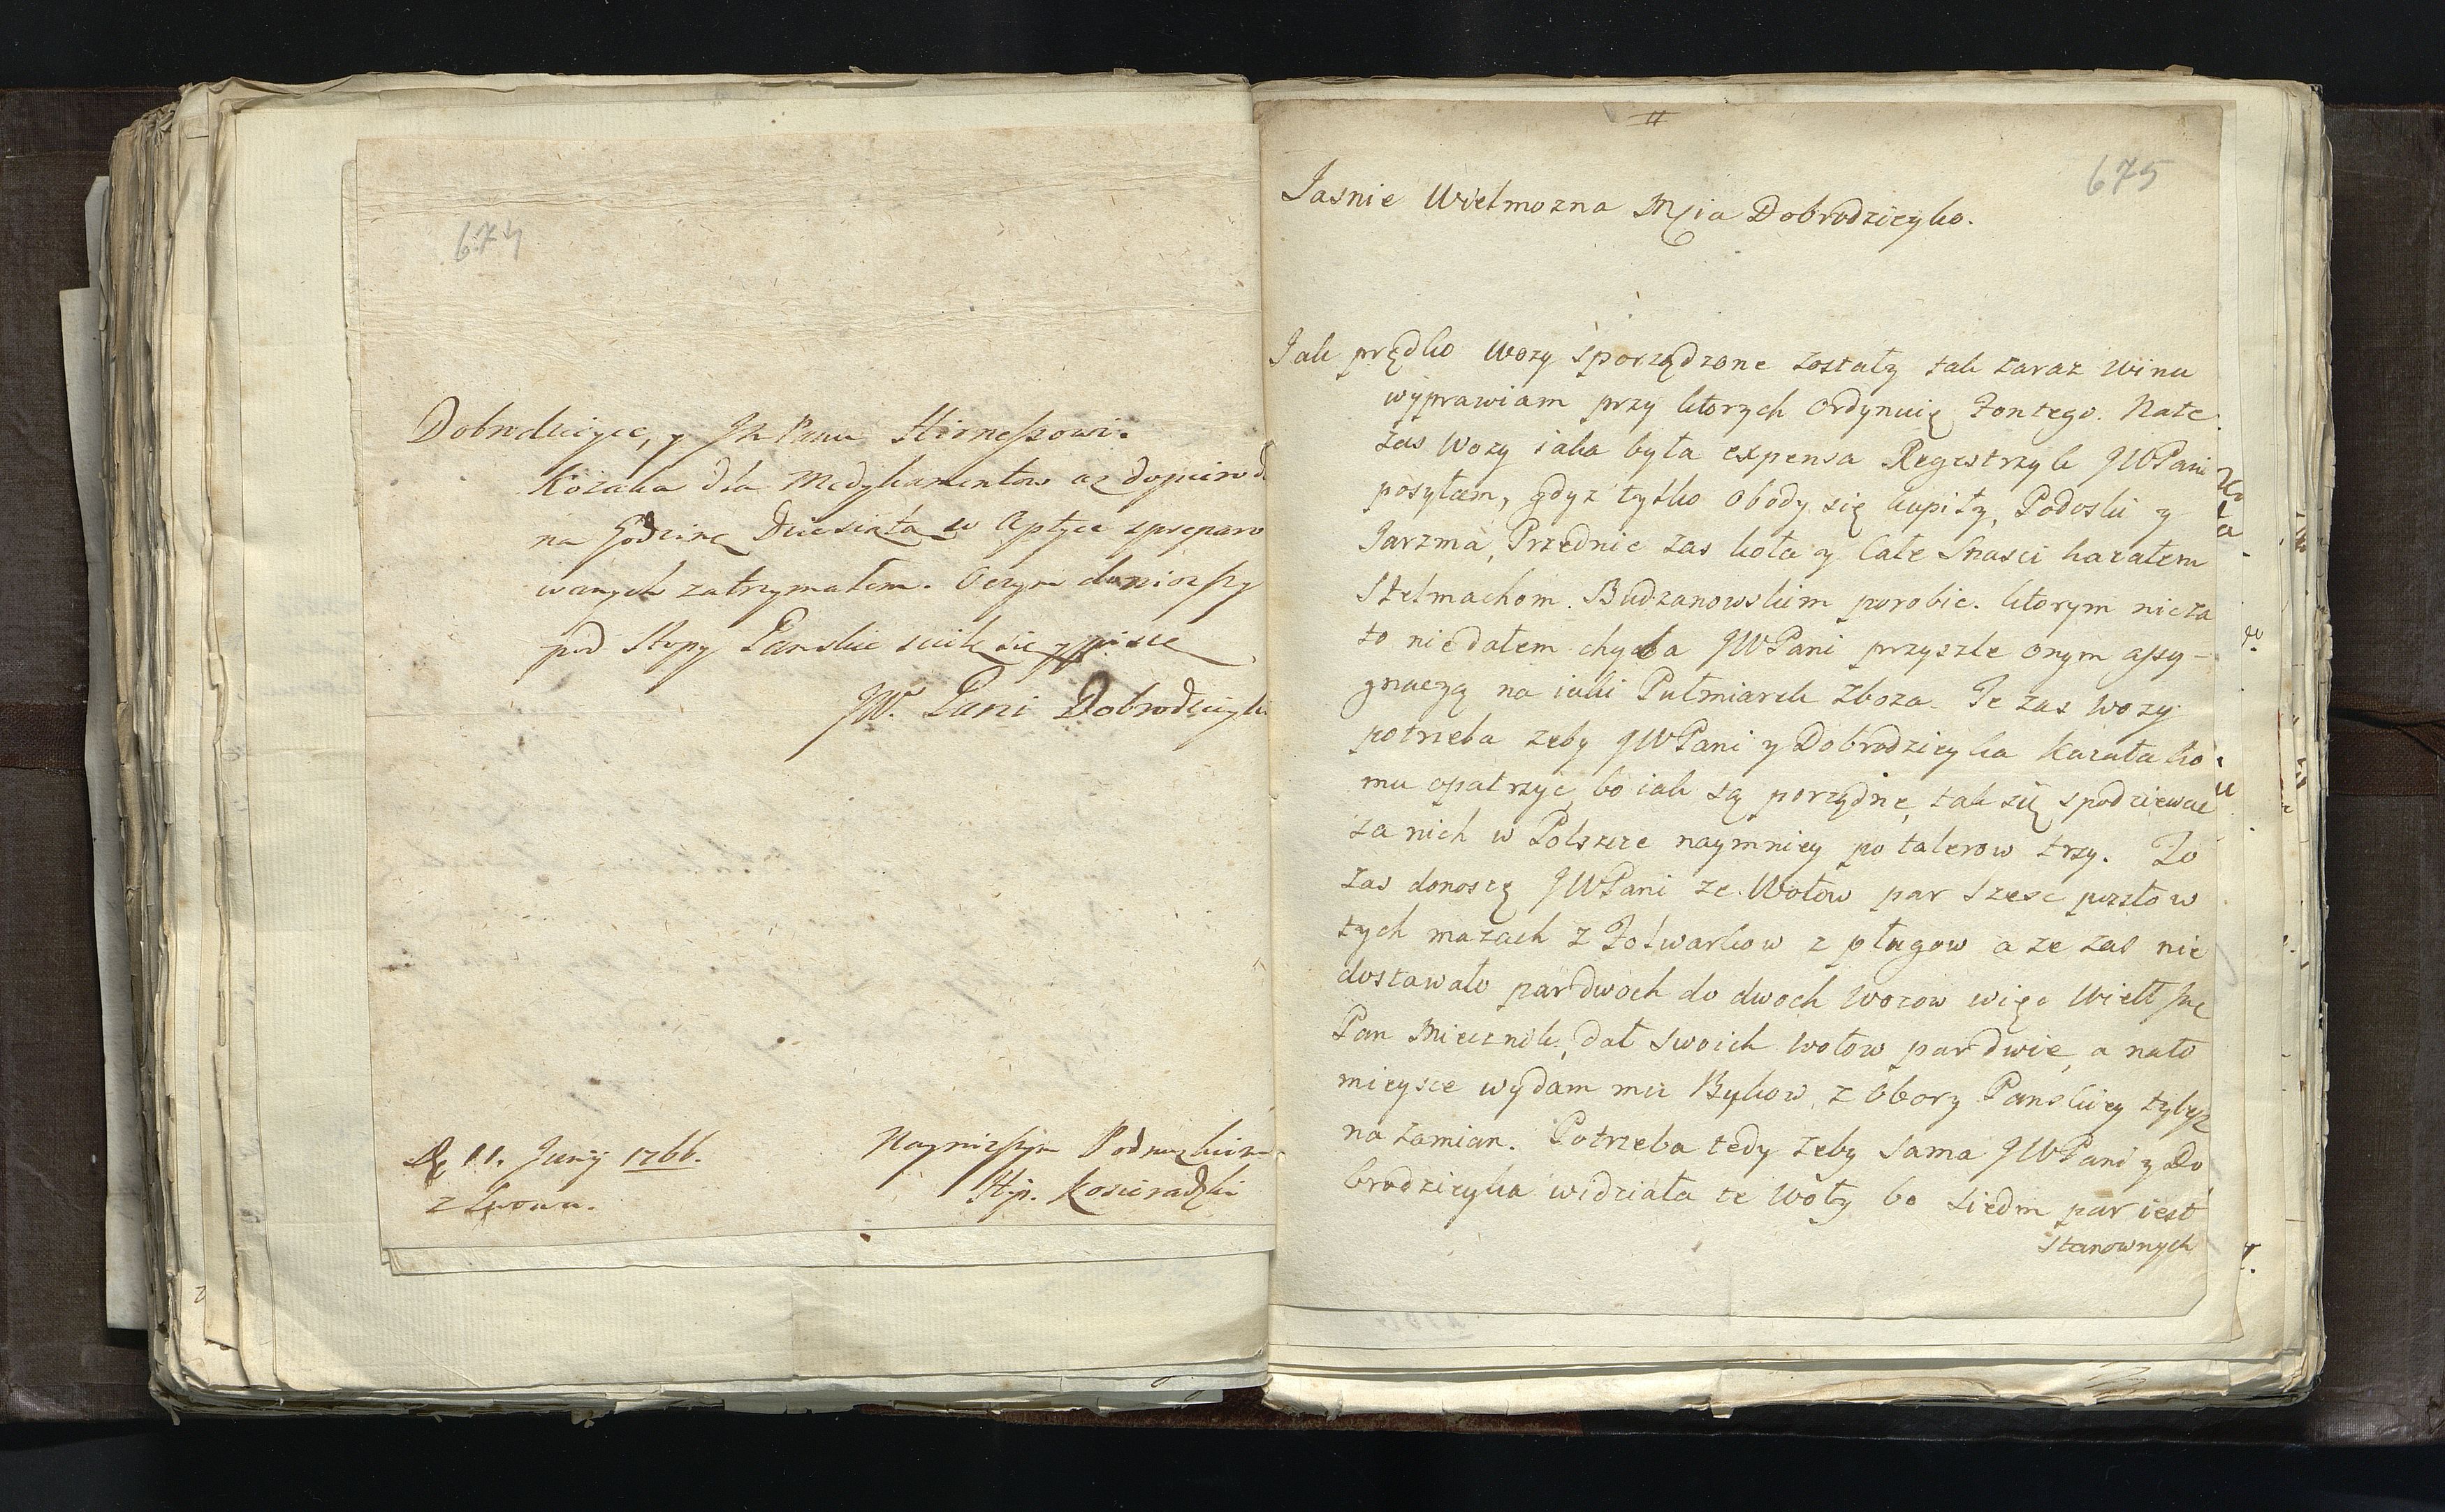 674
Dobrodzieyce, y Jch Panu Hirneszowi.
Kozaka dla Medykamentow az dopiero d
na Godzinę Dziesiątą w Aptyce zpreparo
wanych zatrzymałem. Oczym doniozszy
pod Stopy Panskie sciele się y pisze
JW. Pani Dobrodzieyki
D. 11. Junÿ 1766.
z Lwowa.
Nayniższym Podnozkiem
Hyp. Kosieradzki
675
Jasnie Wielmozna Mcia Dobrodzieyko.
Jak prędko wozy sporządzone zostały tak zaraz Wina
wyprawiam przy ktorych ordynuię Zontego. Nate
zas wozy iaka była expensa Regestrzyk JWPani
posyłam, gdyz tylko obody się kupiły, Podoski y
Jarzma, Przednie zas koła y Całe Snasci kazałem
Stelmachom Budzanowskim porobic. ktorym nic za
to niedałem chyba JWPani przyszle onym assy-
gnacyą na iaki Pułmiarek zboza. Te zas wozy
potrzeba zeby JWPani y Dobrodzieyka kazała ko
mu opatrzyc, bo iak są porządne, tak się spodziewac
za nich w Polszcze naymniey po talerow trzy. To
zas donoszę JWPani ze Wołow par szesc poszło w
tych mazach z Folwarkow z pługow a ze zas nie
dostawało par dwoch do dwoch wozow więc Wiel Jmc
Pan Miecznik, dał swoich wołow par dwie, a nato
mieysce wydam mu Bykow z Obory Panskiey tylysz
na zamian. Potrzeba tedy zeby sama JWPani y Do
brodzieyka widziała te woły bo siedm par iest
Stanownych